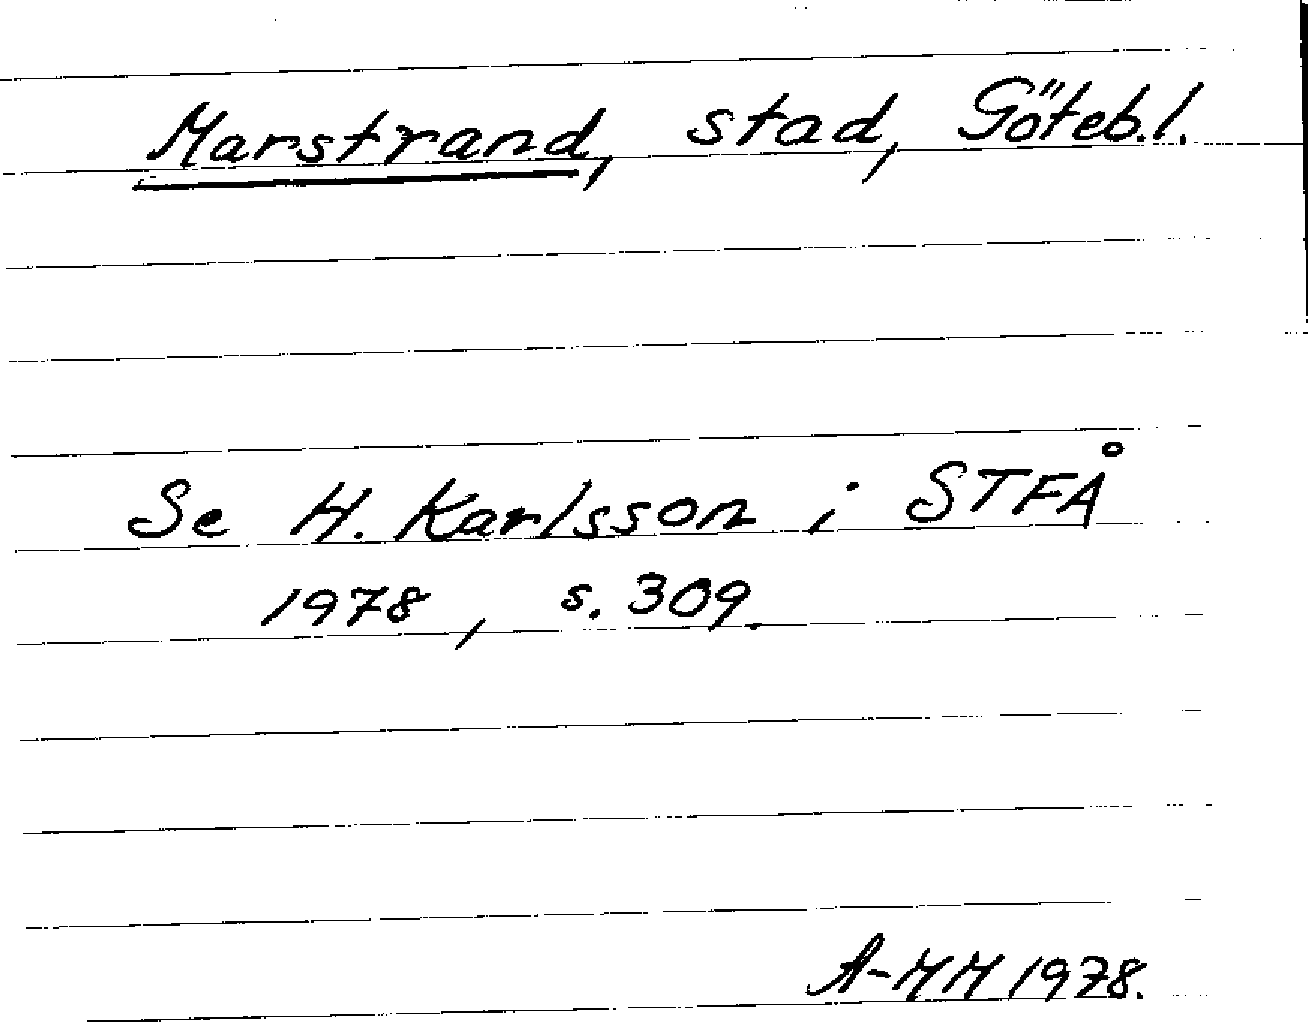 Marstrand, stad, Göteb.l.
Se H. Karlsson i STFÅ
1978, s. 309.
A-MM 1978.